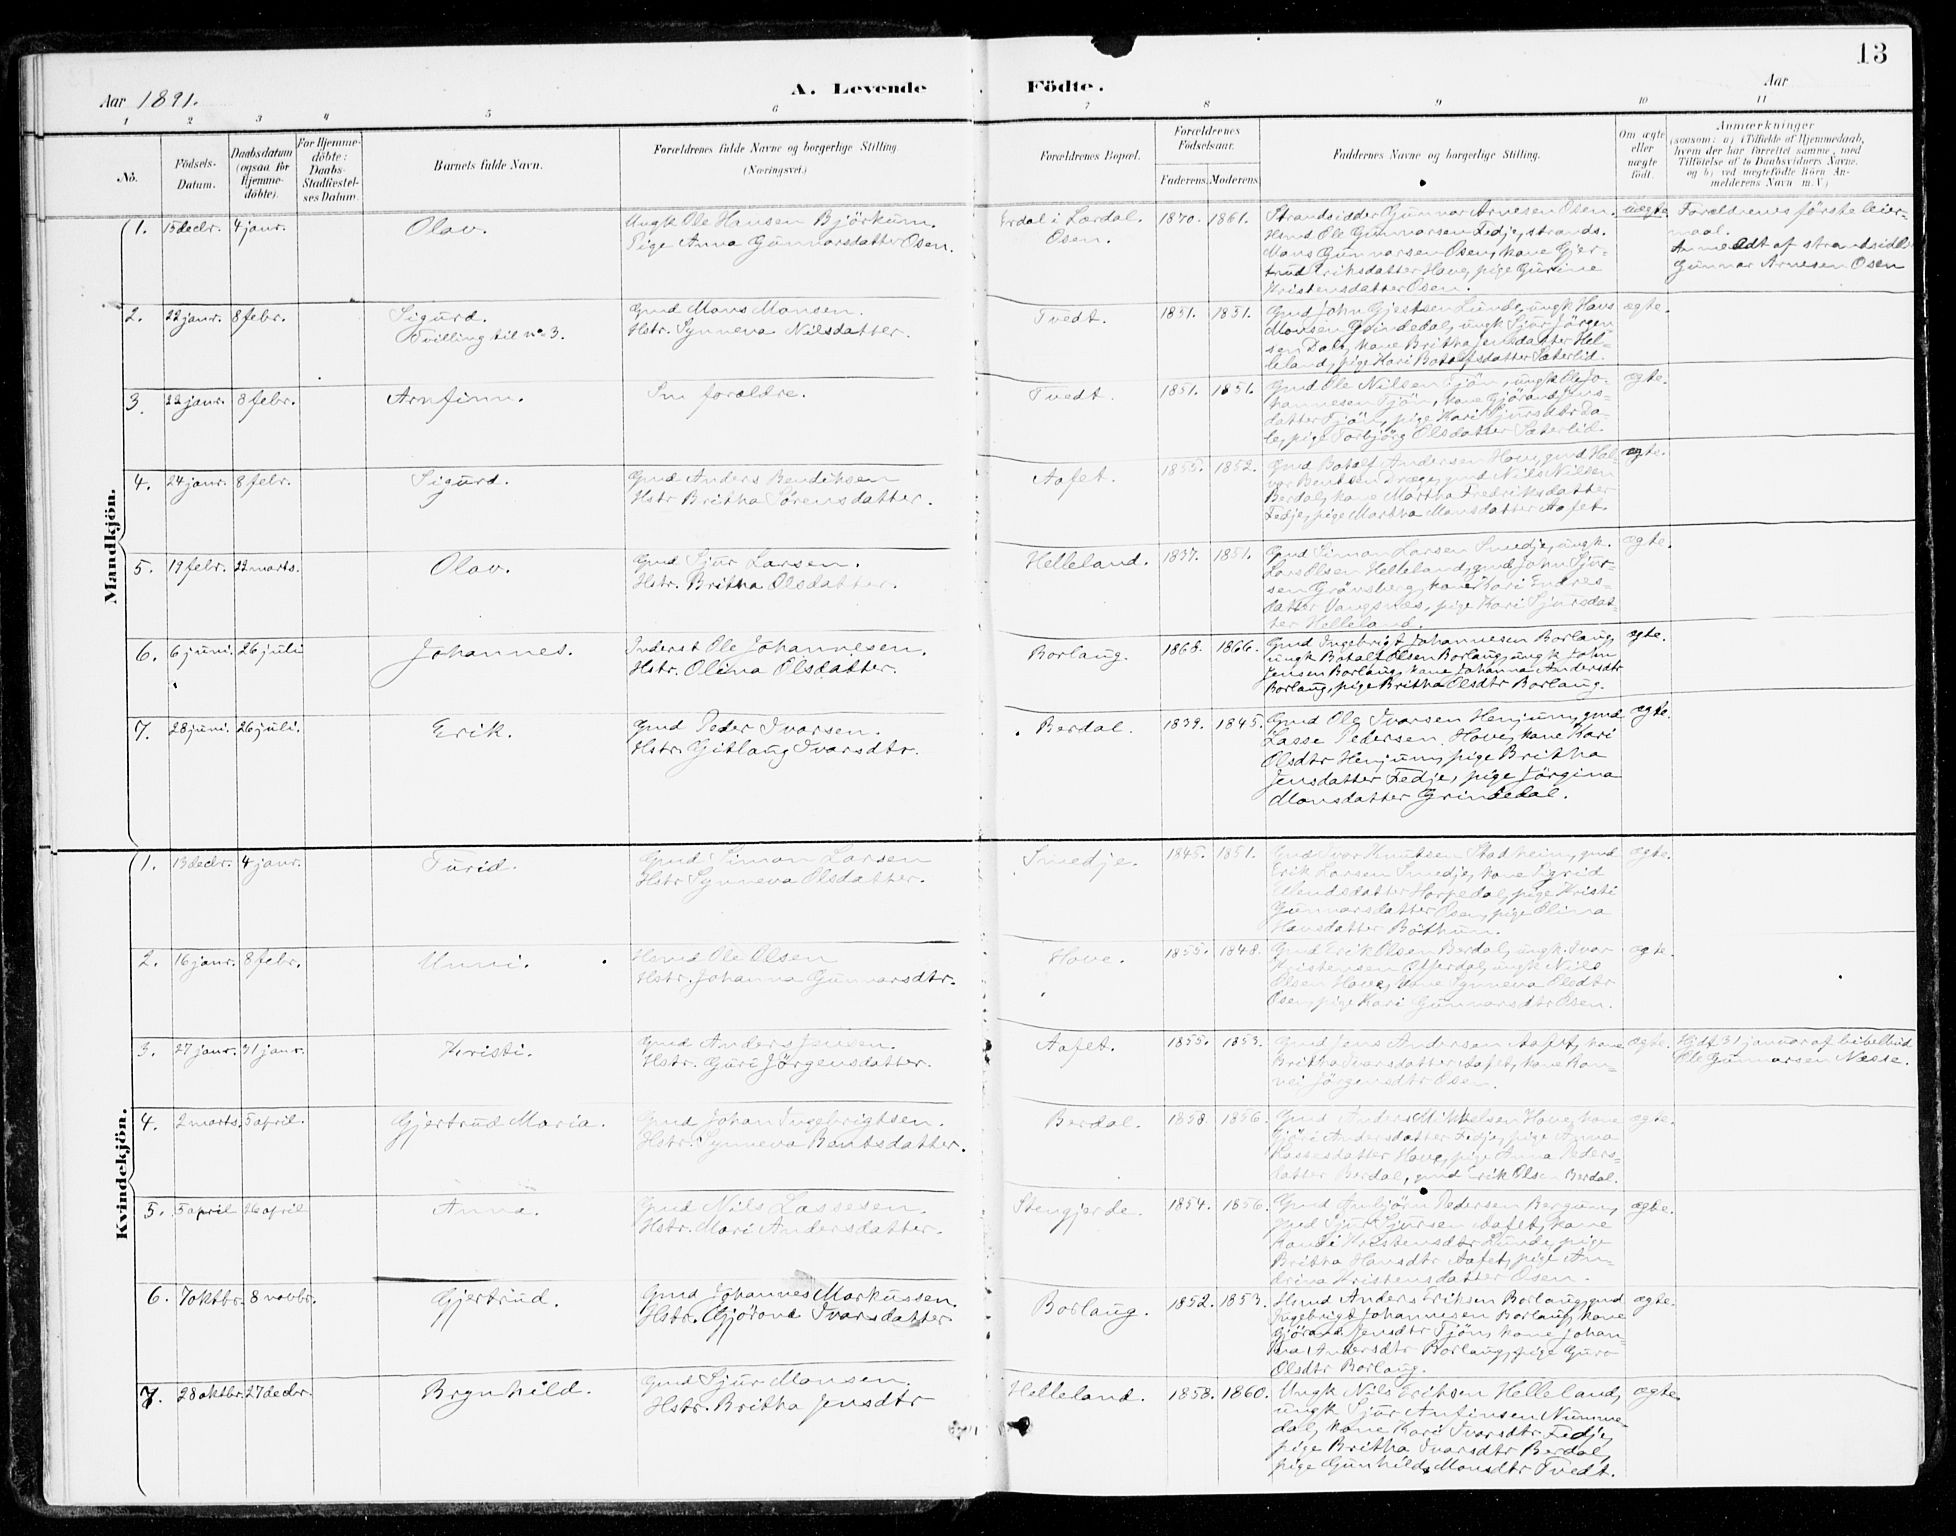 13
Aar 1891.
A. Levende Födte.
Aar
1 2 3 4 5 6 7 8 9 10 11
No.
Födsels-Datum.
Daabsdatum (ogsaa for Hjemme-döbte).
For Hjemme-döbte: Daabs-Stadfæstel-ses Datum.
Barnets fulde Navn.
Forældrenes fulde Navne og borgerlige Stilling. (Næringsvei.)
Forældrenes Bopæl.
Forældrenes Födselsaar.
Faderens. Moderens.
Faddernes Navne og borgerlige Stilling.
Om ægte eller uægte födt.
Anmærkninger
(saasom: a) i Tilfælde af Hjemmedaab, hvem der har forrettet samme, med Tilföielse af to Daabsvidners Navne, og b) ved uægtefödte Börn An-melderens Navn m. V.)
Mandkjön.
1. 15 decbr. 4 janr. Olav. Ungk Ole Hansen Björkum.
Pige Anna Gunnarsdatter Osen.
Erdal i Lærdal.
Osen.
1870. 1861.
Strandsidder Gunnar Arnesen Osen,
Hmd Ole Gunnarsen Fedje, strands.
Mons Gunnarsen Osen, kone Gjer-
trud Eriksdatter Hove, pige Gurine
Kristensdatter Osen.
uægte. Forældrenes første leier-
maal.
Anmeldt af strandsidd.
Gunnar Arnesen Osen
2. 22 janr. 8 febr. Sigurd.
Tvilling til no 3.
Gmd Mons Monsen.
Hstr. Synneva Nilsdatter.
Tvedt. 1851. 1851.
Gmd John Gjestsen Lunde, ungk Hans
Monsen Grindedal, ungk Sjur Jörgen-
sen Dale, kone Britha Jensdatter Hel-
leland, pige Kari Botolfsdatter Sæterlid.
ægte.
3. 22 janr. 8 febr. Arnfinn. Sm forældre.
Tvedt. 1851. 1851.
Gmd Ole Nilsen Tjön, ungk Ole Jo-
hannesen Tjön, kone Gjörand Jens-
datter Tjön, pige Kari Sjursdtr Da-
le, pige Torbjörg Olsdatter Sæterlid.
ægte.
4. 24 janr. 8 febr. Sigurd. Gmd Anders Bendiksen
Hstr Britha Sörensdatter.
Aafet. 1855. 1852.
Gmd Botolf Andersen Hove, gmd Hal-
vor Bentsen Dræge, gmd Nils Nilsen
Berdal, kone Martha Fredriksdatter
Fedje, pige Martha Monsdatter Aafet.
ægte.
5. 19 febr. 22 marts. Olav. Gmd Sjur Larsen.
Hstr. Britha Olsdatter.
Helleland. 1837. 1851.
Gmd Simon Larsen Smedje, ungk.
Lars Olsen Helleland, gmd John Sjur-
sen Grönsberg, kone Kari Endres-
datter Vangsnæs, pige Kari Sjursdat-
ter Helleland.
ægte.
6. 6 juni. 26 juli Johannes. Inderst Ole Johannesen.
Hstr. Olina Olsdatter.
Borlaug. 1868. 1866.
Gmd Ingebrigt Johannesen Borlaug,
ungk Botolf Olsen Borlaug, ungk John
Jensen Borlaug, kone Johanna Andersdtr
Borlaug, pige Britha Olsdtr Borlaug.
ægte.
7. 28 juni. 26 juli. Erik. Gmd Peder Ivarsen.
Hstr. Gjitlaug Ivarsdtr.
Berdal. 1839. 1845.
Gmd Ole Ivarsen Henjum, gmd
Lasse Pedersen Hove, kone Kari
Olsdtr Henjum, pige Britha
Jensdatter Fedje, pige Jörgina
Monsdatter Grindedal.
ægte.
Kvindekjön.
1. 13 decbr. 4 janr. Turid. Gmd Simon Larsen
Hstr Synneva Olsdatter.
Smedje. 1845. 1851.
Gmd Ivar Knutsen Stadheim, gmd
Erik Larsen Smedje, kone Sigrid
Horpedal, pige Kristi
Gunnarsdatter Osen, pige Olina
Hansdatter Böthun.
ægte.
2. 16 janr. 8 febr. Unni. Hmd Ole Olsen
Hstr. Johanna Gunnarsdtr.
Hove. 1855. 1848.
Gmd Erik Olsen Berdal, ungk. Ivar
Kristensen Otterdal, ungk Nils
Olsen Hove, kone Synneva Olsdtr
Osen, pige Kari Gunnarsdtr Osen.
ægte.
3. 27 janr. 31 janr. Kristi. Gmd Anders Jensen.
Hstr. Guri Jörgensdatter.
Aafet. 1855. 1853.
Gmd Jens Andersen Aafet, kone
Britha Ivarsdatter Aafet, kone Ran-
vei Jörgensdtr Osen.
ægte. Hjdf 31 januar af bibelbud
Ole Gunnarsen Næsse.
4. 2 marts. 5 april. Gjertrud Maria. Gmd Johan Ingebrigtsen.
Hstr. Synneva Bentsdatter.
Berdal. 1858. 1856.
Gmd Anders Mikkelsen Hove, kone
Gjöri Andersdatter Fedje, pige Anna
Lassesdatter Hove, pige Anna Peders-
datter Berdal, gmd Erik Olsen Berdal.
ægte.
5. 5 april 26 april Anna. Gmd Nils Lassesen.
Hstr. Mari Andersdatter.
Stengjerde. 1854. 1856.
Gmd Anbjörn Pedersen Bergum,
gmd Sjur Sjursen Aafet, kone
Randi Kristensdtr Lunde, pige
Britha Hansdtr Aafet, pige An-
drina Kristensdatter Osen.
ægte.
6. 7 oktbr. 8 novbr. Gjertrud. Gmd Johannes Markussen.
Hstr. Gjörond Ivarsdatter
Borlaug. 1852. 1853.
Hmd Anders Eriksen Borlaug, gmd
Ingebrigt Johannesen Borlaug, kone
Gjörand Jensdtr Tjön, kone Johan-
na Andersdtr Borlaug, pige Guro
Olsdtr Borlaug.
ægte.
7. 28 oktbr. 27 decbr. Brynhild. Gmd Sjur Monsen.
Hstr. Britha Jensdtr
Helleland. 1858. 1860.
Ungk Nils Eriksen Helleland,
ungk Sjur Anfinsen Numme-
dal, kone Kari Ivarsdtr Fedje,
pige Britha Ivarsdtr Berdal,
pige Gunhild Monsdtr Tvedt.
ægte.